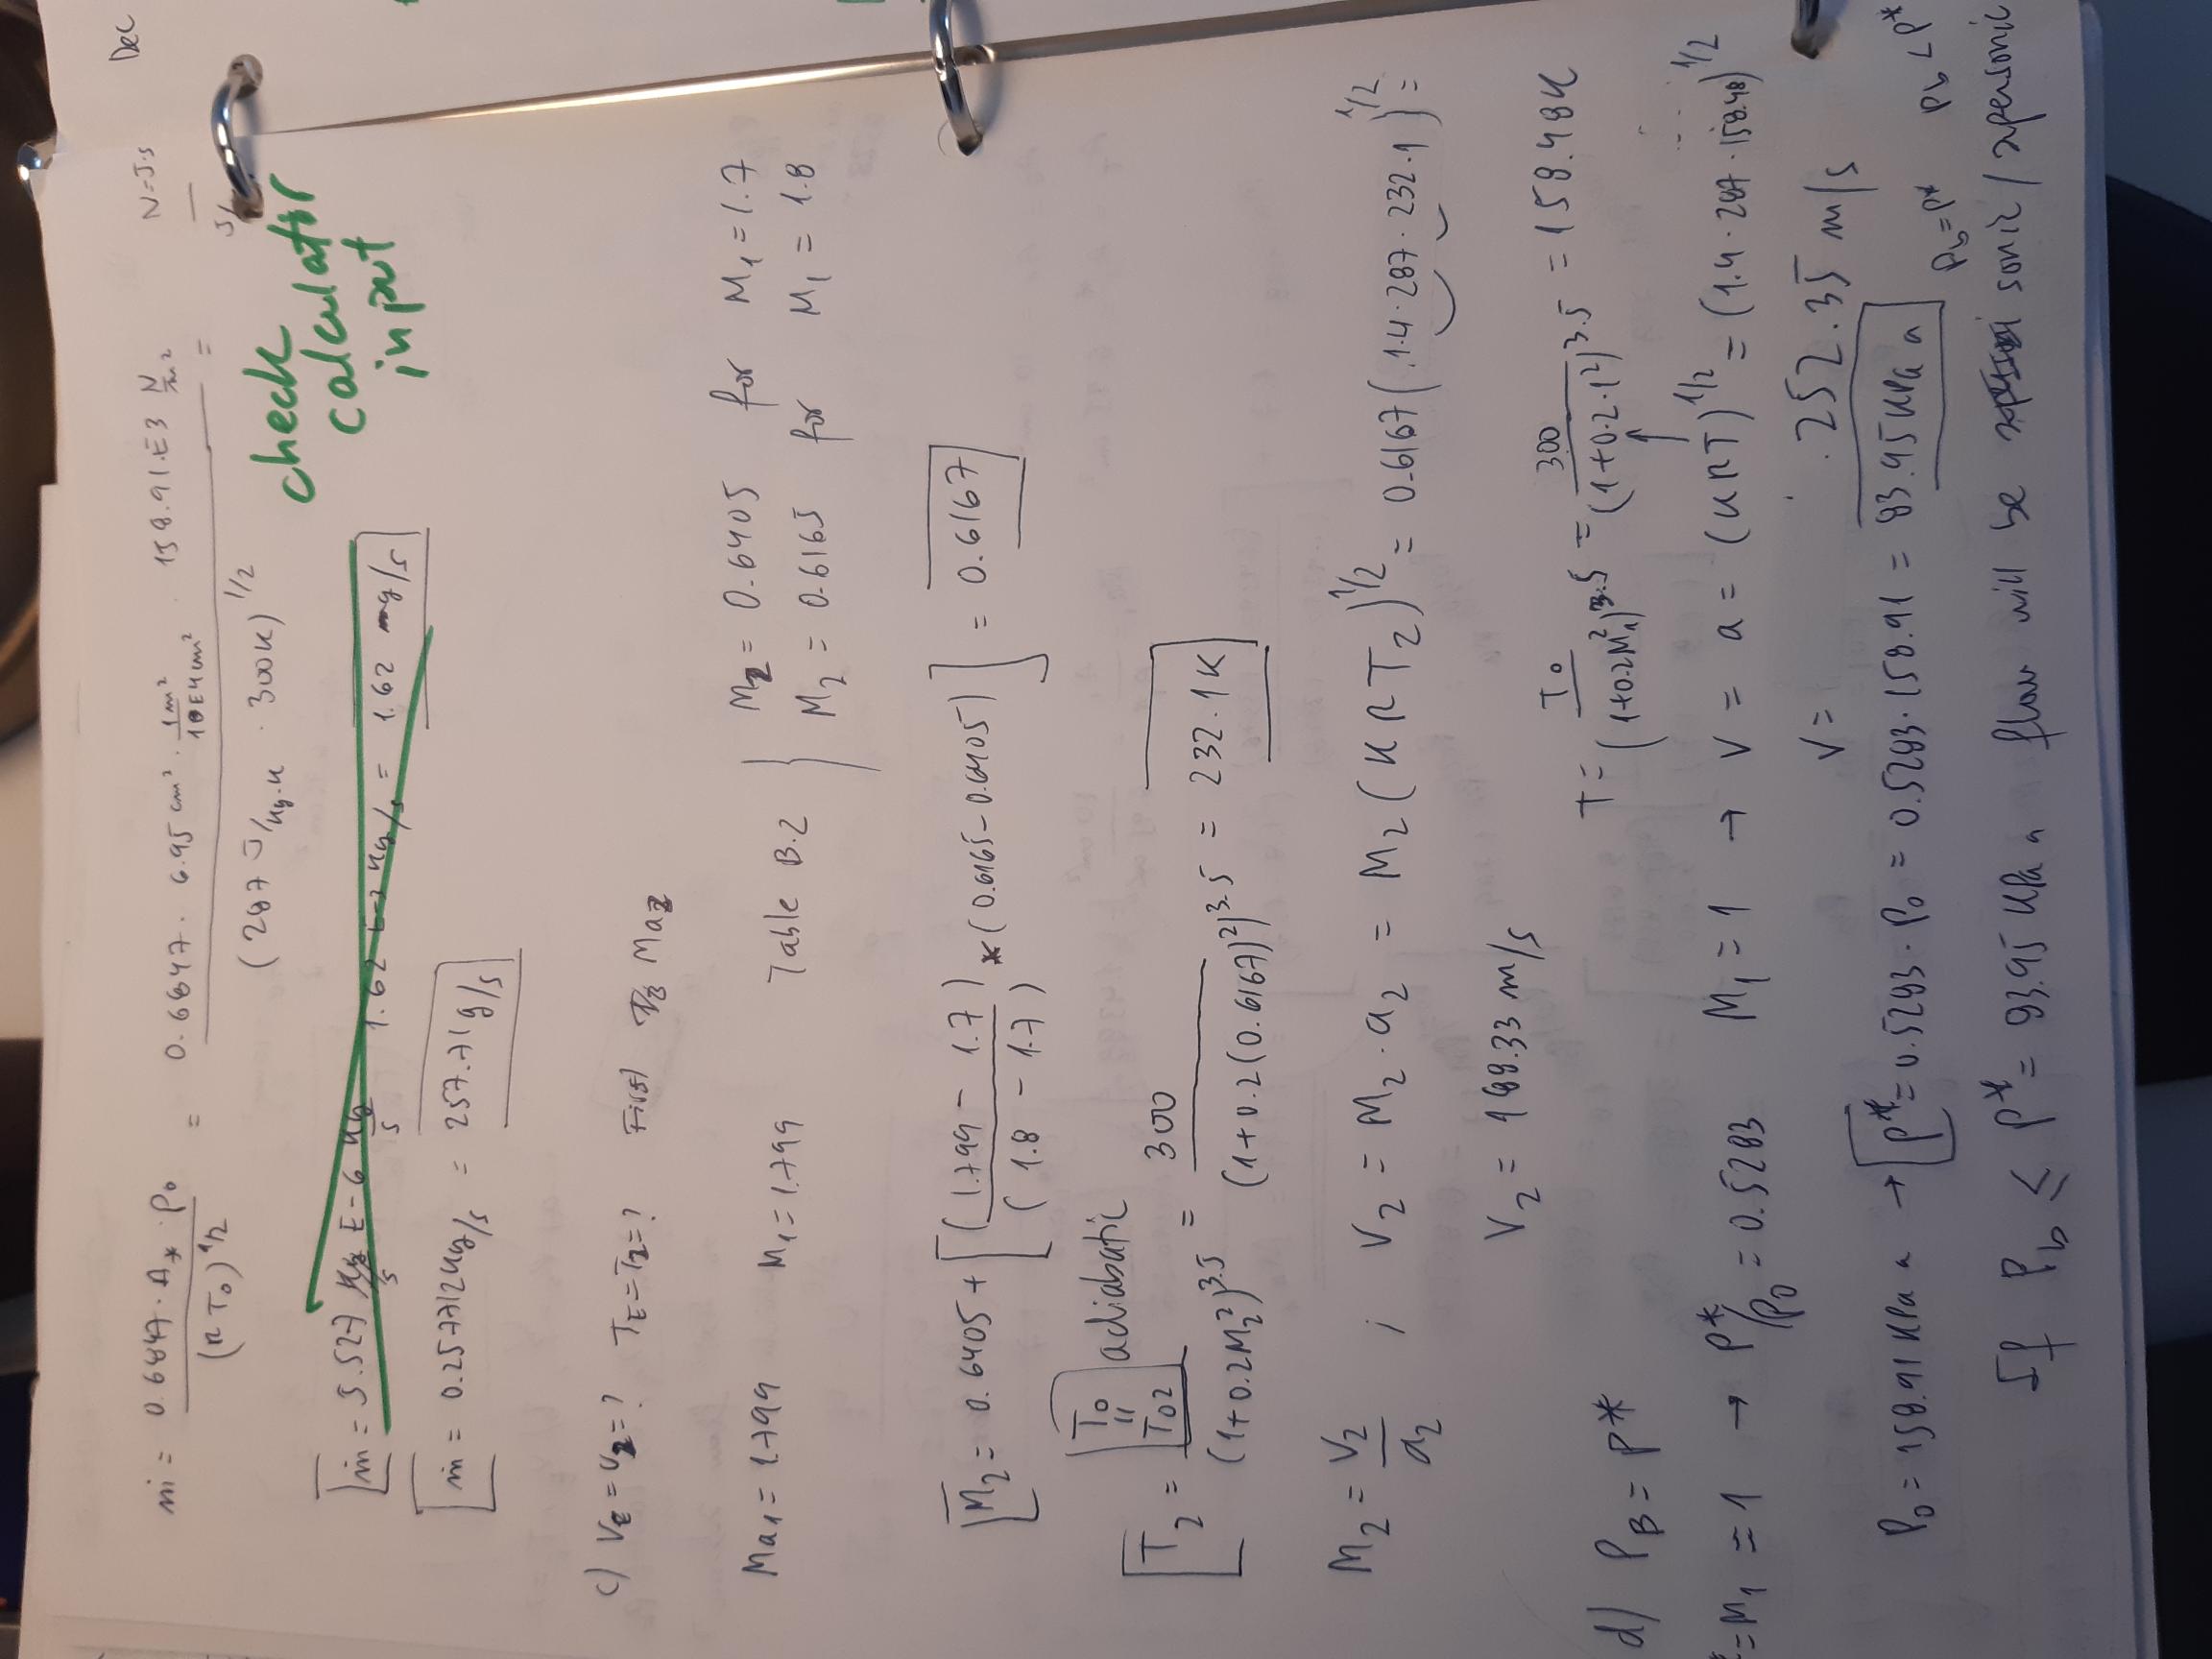 Dec
ṁ = 0.6847 · A* · P0 / (R T0)^1/2 = 0.6847 · 6.95 cm² · 1m²/10E4cm² · 158.91·E3 N/m² / (287 J/kg·K · 300K)^1/2 =
N=J·s
check calculator input
ṁ = 5.527 E-6 kg/s 1.62 E-3 kg/s = 1.62 mg/s
ṁ = 0.257712 kg/s = 257.71 g/s
c) VE = V2 = ? TE = T2 = ? First Ma2
Ma1 = 1.799 M1 = 1.799 Table B.2
M2 = 0.6405 for M1 = 1.7
M2 = 0.6165 for M1 = 1.8
M2 = 0.6405 + [(1.799 - 1.7) / (1.8 - 1.7) * (0.6165 - 0.6405)] = 0.6167
T0 = T02 adiabatic
T2 = T02 / (1+0.2M2²)^3.5 = 300 / (1+0.2(0.6167)²)^3.5 = 232.1K
M2 = V2/a2 ; V2 = M2 · a2 = M2 (KRT2)^1/2 = 0.6167 (1.4 · 287 · 232.1)^1/2 =
V2 = 188.33 m/s
T = T0 / (1+0.2M1²)^3.5 = 300 / (1+0.2·1²)^3.5 = 158.48K
d) PB = P*
* = M1 = 1 → P*/P0 = 0.5283 M1 = 1 → V = a = (KRT)^1/2 = (1.4 · 287 · 158.48)^1/2
V = 252.35 m/s
P0 = 158.91 KPa a → P* = 0.5283 · P0 = 0.5283 · 158.91 = 83.95 KPa a
Pb = P* Pb < P*
If Pb ≤ P* = 83.95 KPa a flow will be sonic / supersonic